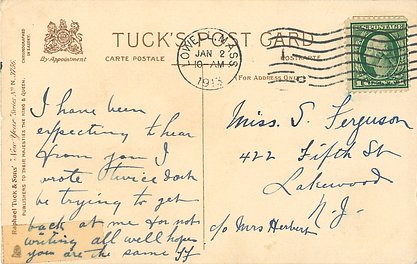 TUCK'S POST CARD
By Appointment
CARTE POSTALE
POSTKARTE
(For Address Only)
CHROMOGRAPHED
IN SAXONY.
Raphael Tuck & Sons' "New Year" Series No. N. 3736
PUBLISHERS TO THEIR MAJESTIES THE KING & QUEEN.
LOWELL, MASS
JAN 2
10-AM
1913
U.S. POSTAGE
I have been
expecting to hear
from you I
wrote twice dont
be trying to get
back at me for not
writing all well hope
you are the same
Miss. S. Ferguson
422 Fifth St
Lakewood
N.J.
c/o Mrs Herbert